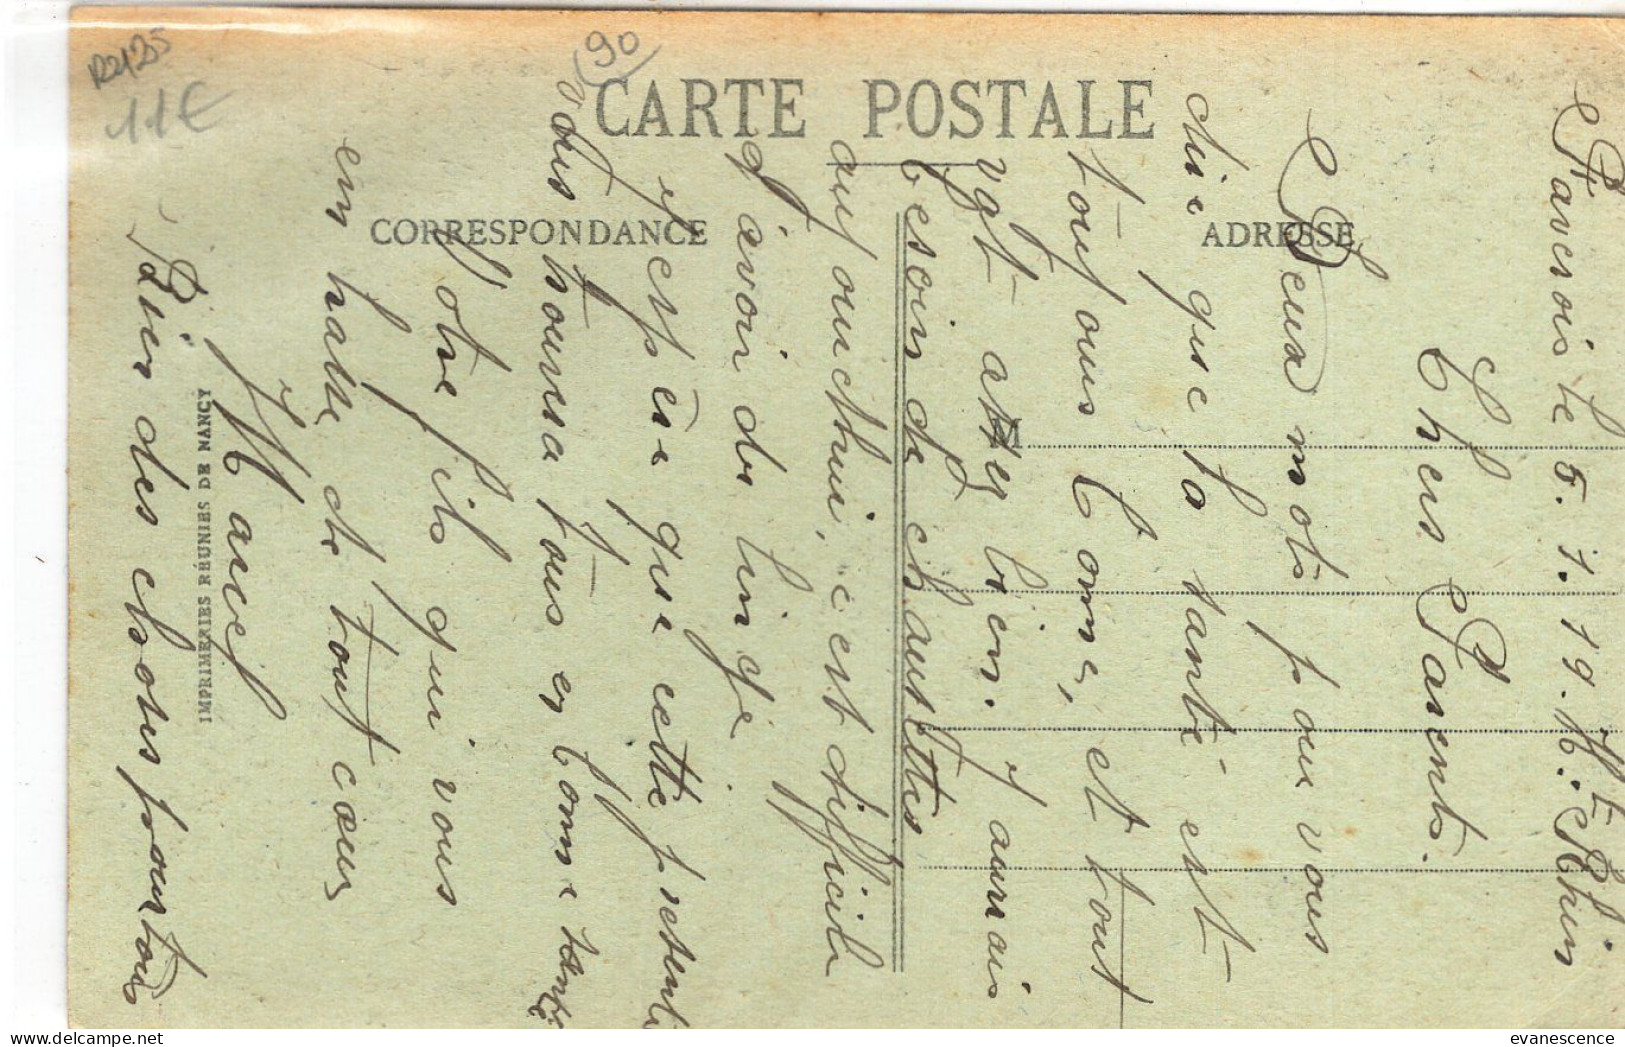 R2125
11€
90
CARTE POSTALE
CORRESPONDANCE
ADRESSE
M
IMPRIMERIES RÉUNIES DE NANCY
le 5.1.19. Ht Rhin
Chers Parents.
Deux mots pour vous
dire que la santé est
toujours bonne, et tout
vat assez bien. j'aurais
besoin de chaussettes
aujourd'hui, c'est difficile
d'avoir du linge.
j'espère que cette présente
vous trouvra tous en bonne santé
Votre fils qui vous
embrasse de tout cœur
Marcel
Bien des choses pour tous
evanescence